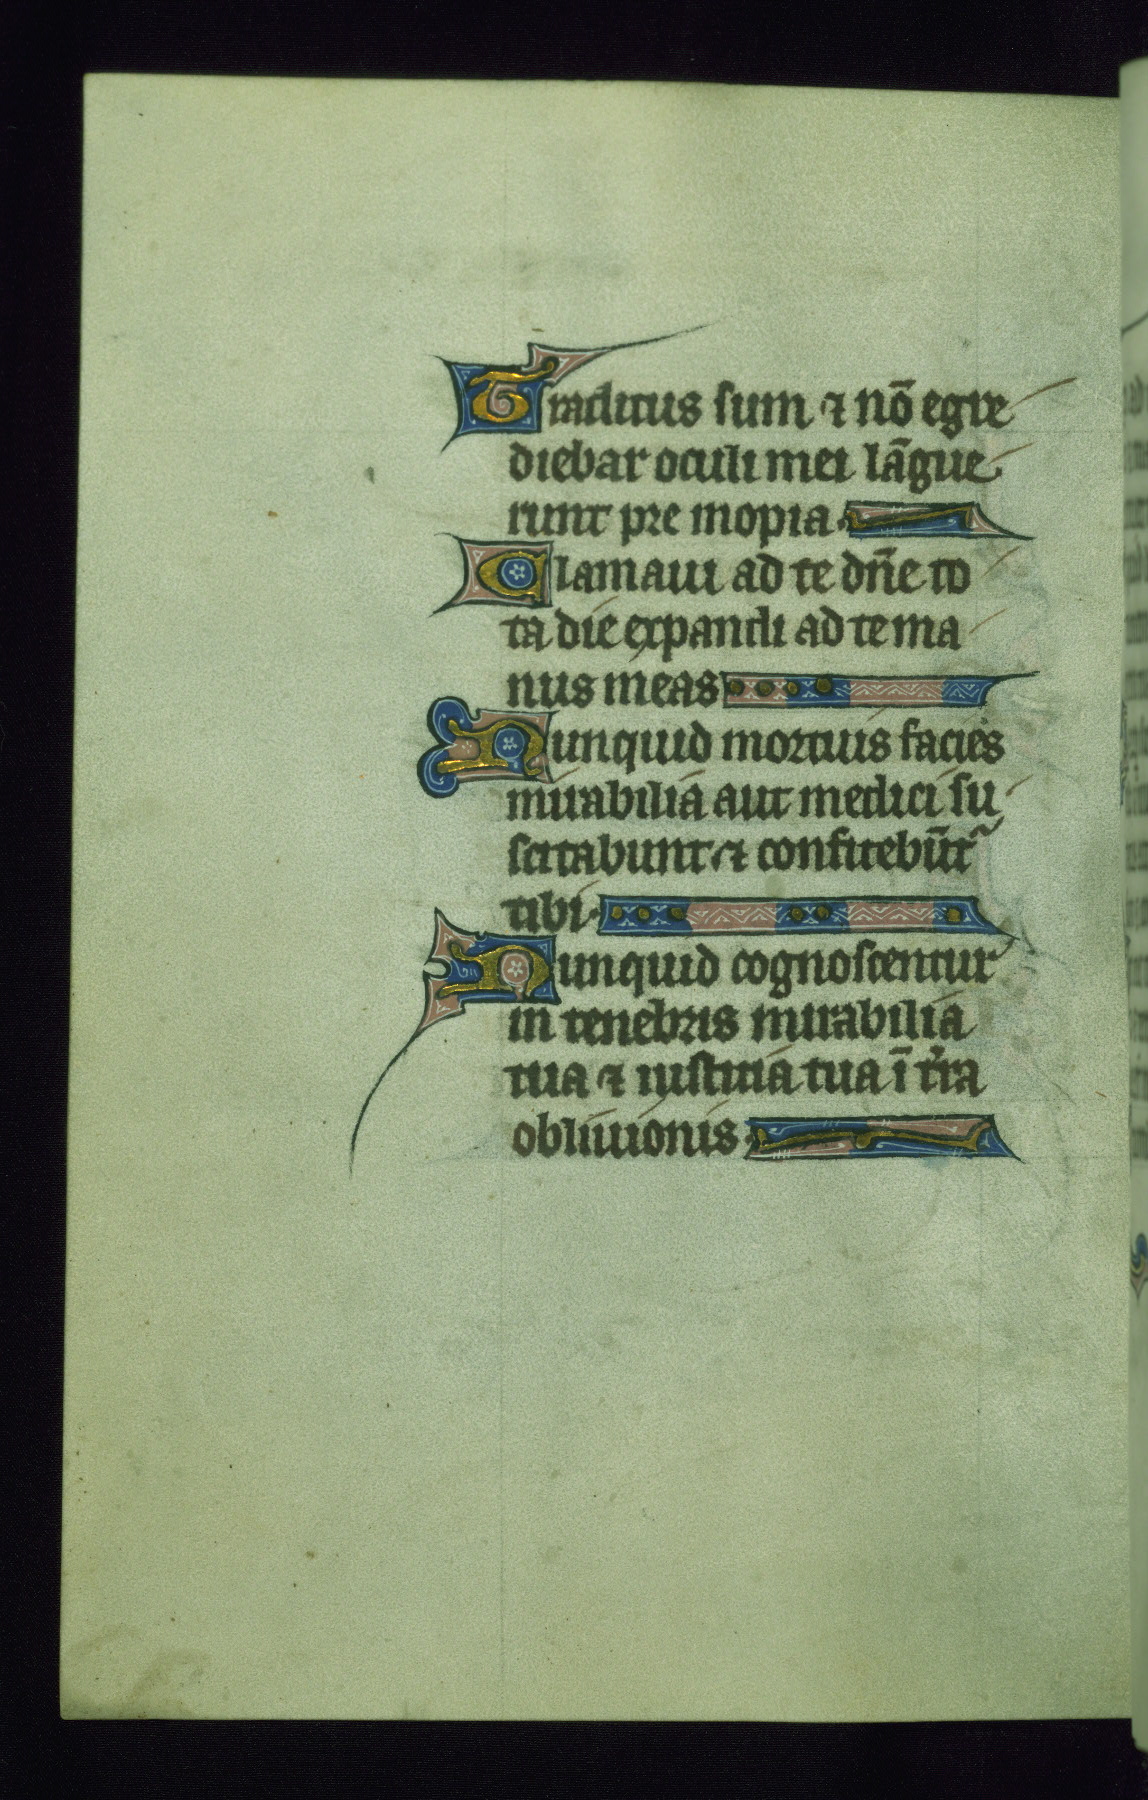 Traditus sum ⁊ nō egre
diebar oculi mei lāgue
runt pre inopia.
Clamaui ad te dn̄e to
ta die expandi ad te ma
nus meas
Nunquid mortuis facies
mirabilia aut medici su
scitabunt ⁊ confitebūtᷣ
tibi.
Nunquid cognoscentur
in tenebris mirabilia
tua ⁊ iusticia tua ī t̓ra
obliuionis.